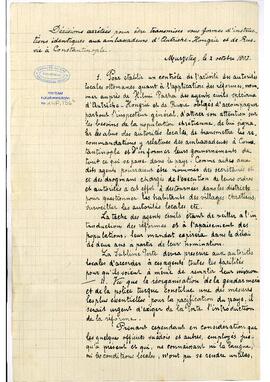 Décisions arrêtées pour être transmises sous formes d'instructions
identiques aux ambassadeurs d'Autriche-Hongrie et de Russie
à Constantinople.
Murzsteg, le 2 octobre 1903.
1. Pour établir un contrôle de l'activité des autorités
locales ottomanes quant à l'application des réformes, nommer
auprès de Hilmi Pacha des agents civils spéciaux
d'Autriche-Hongrie et de Russie obligés d'accompagner
partout l'inspecteur général, d'attirer son attention sur
les besoins de la population chrétienne, de lui signaler
les abus des autorités locales, de transmettre les recommandations
y relatives des ambassadeurs à Constantinople
et d'informer leurs gouvernements de
tout ce qui se passe dans le pays. Comme aides aux
dits agents pourraient être nommés des secrétaires et
des drogmans chargés de l'exécution de leurs ordres
et autorisés à cet effet à des tournées dans les districts
pour questionner les habitants des villages chrétiens,
surveiller les autorités locales etc.
La tâche des agents civils étant de veiller à l'introduction
des réformes et à l'apaisement des
populations, leur mandat expirera dans le délai
de deux ans à partir de leur nomination.
La Sublime Porte devra prescrire aux autorités
locales d'accorder à ces agents toutes les facilités
pour qu'ils soient à même de remplir leur mission.
2. Vu que la réorganisation de la gendarmerie
et de la police turque constitue une des mesures
les plus essentielles pour la pacification du pays, il
serait urgent d'exiger de la Porte l'introduction
de la réforme.
Prenant cependant en considération que
les quelques officiers suédois et autres, employés jusqu'à
présent et qui, ne connaissant ni la langue,
ni les conditions locales, n'ont pu se rendre utiles,